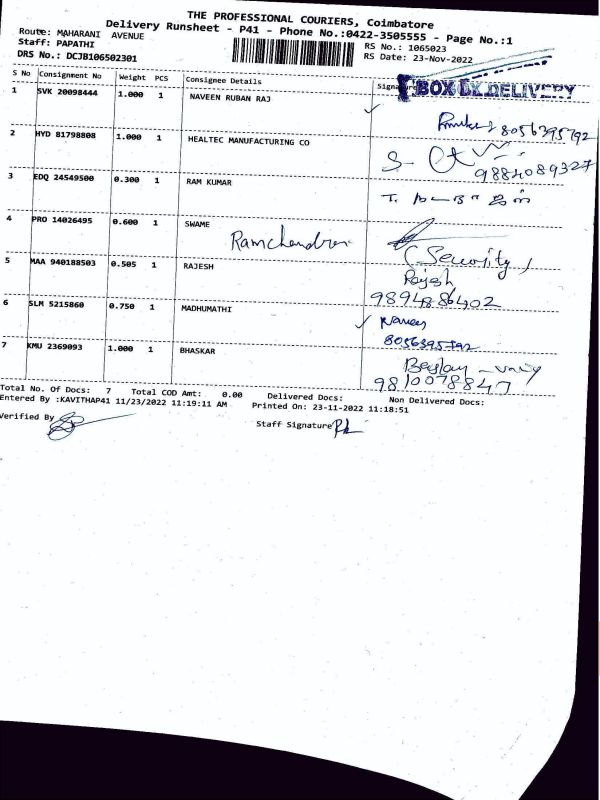 THE PROFESSIONAL COURIERS, Coimbatore
Delivery Runsheet - P41 - Phone No.:0422-3505555 - Page No.:1
Route: MAHARANI AVENUE
RS No.: 1065023
Staff: PAPATHI
RS Date: 23-Nov-2022
DRS No.: DCJB106502301
S No Consignment No Weight PCS Consignee Details Signature
BOX DX DELIVERY
1 SVK 20098444 1.000 1 NAVEEN RUBAN RAJ
8056395792
2 HYD 81798808 1.000 1 HEALTEC MANUFACTURING CO
9884089327
3 EDQ 24549500 0.300 1 RAM KUMAR
4 PRO 14026495 0.600 1 SWAME
Ramchandran
(Security)
5 MAA 940188503 0.505 1 RAJESH
Rajesh
9894886402
6 SLM 5215860 0.750 1 MADHUMATHI
Naveen
8056395792
7 KMU 2369093 1.000 1 BHASKAR
9810078847
Total No. Of Docs: 7 Total COD Amt: 0.00 Delivered Docs: Non Delivered Docs:
Entered By :KAVITHAP41 11/23/2022 11:19:11 AM Printed On: 23-11-2022 11:18:51
Verified By
Staff Signature